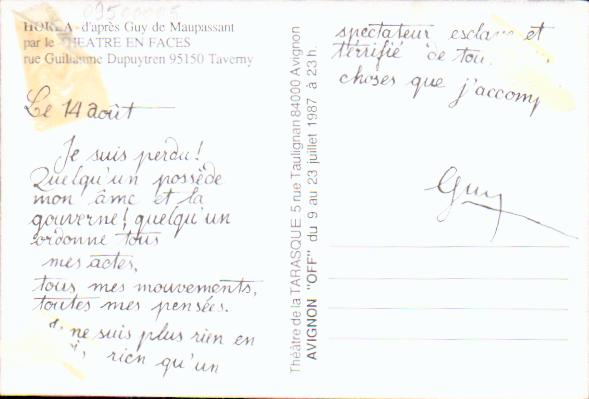 HORLA d'après Guy de Maupassant
par le THEATRE EN FACES
rue Guillaume Dupuytren 95150 Taverny
Le 14 août
Je suis perdu!
Quelqu'un possède
mon âme et la
gouverne! quelqu'un
ordonne tous
mes actes,
tous mes mouvements,
toutes mes pensées.
ne suis plus rien en
rien qu'un
Théâtre de la TARASQUE 5 rue Taulignan 84000 Avignon
AVIGNON "OFF" du 9 au 23 juillet 1987 à 23 h.
spectateur esclave et
terrifié de tou
choses que j'accomp
Guy